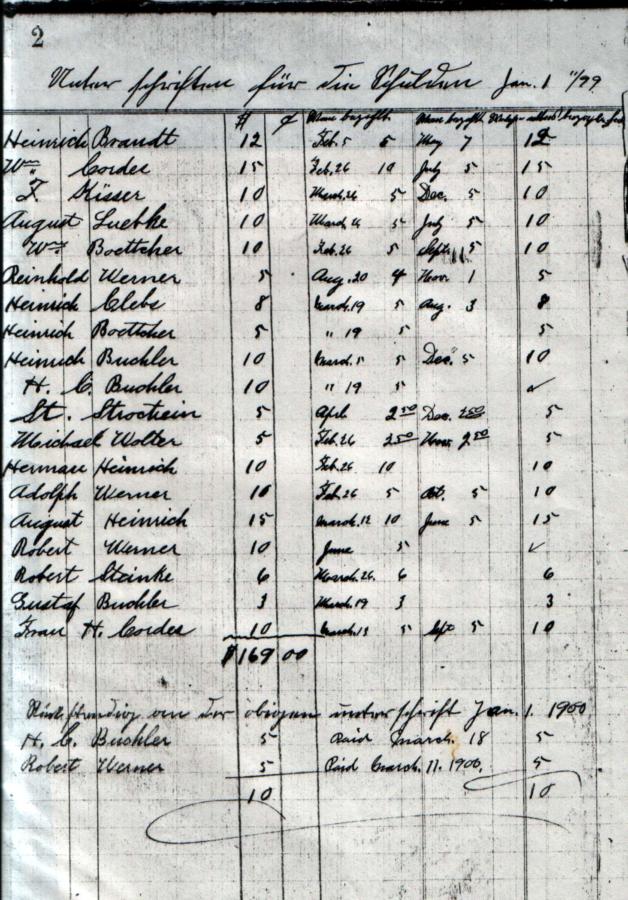 2
Unterschriften für die Schulden Jan. 1 "/99
$ ¢ Wann bezahlt. Wann bezahlt.
Heinrich Brandt 12 Feb. 5 5 May 7 12
Wm Cordes 15 Feb. 26 10 July 5 15
F. 10 March 26 5 Dec. 5 10
August Luebke 10 March 26 5 July 5 10
Wm Boettcher 10 Feb. 26 5 Sept. 5 10
Reinhold Werner 5 Aug. 20 4 Nov. 1 5
Heinrich Clebs 8 March 19 5 Aug. 3 8
Heinrich Boettcher 5 " 19 5 5
Heinrich Buchler 10 March 5 5 Dec. 5 10
H. C. Buchler 10 " 19 5 ✓
St. Strochein 5 April 2 50 Dec. 2 50 5
Michael Wolter 5 Feb. 26 2 50 Nov. 2 50 5
Herman Heinrich 10 Feb. 26 10 10
Adolph Werner 10 Feb. 26 5 Oct. 5 10
August Heinrich 15 March 12 10 June 5 15
Robert Werner 10 June 5 ✓
Robert Steinke 6 March 26. 6 6
Gustaf Buchler 3 March 19 3 3
Frau H. Cordes 10 March 5 Sept 5 10
$169 00
Rückständig von der obigen unterschrift Jan. 1. 1900
H. C. Buchler 5 Paid March. 18 5
Robert Werner 5 Paid March. 11. 1900. 5
10 10